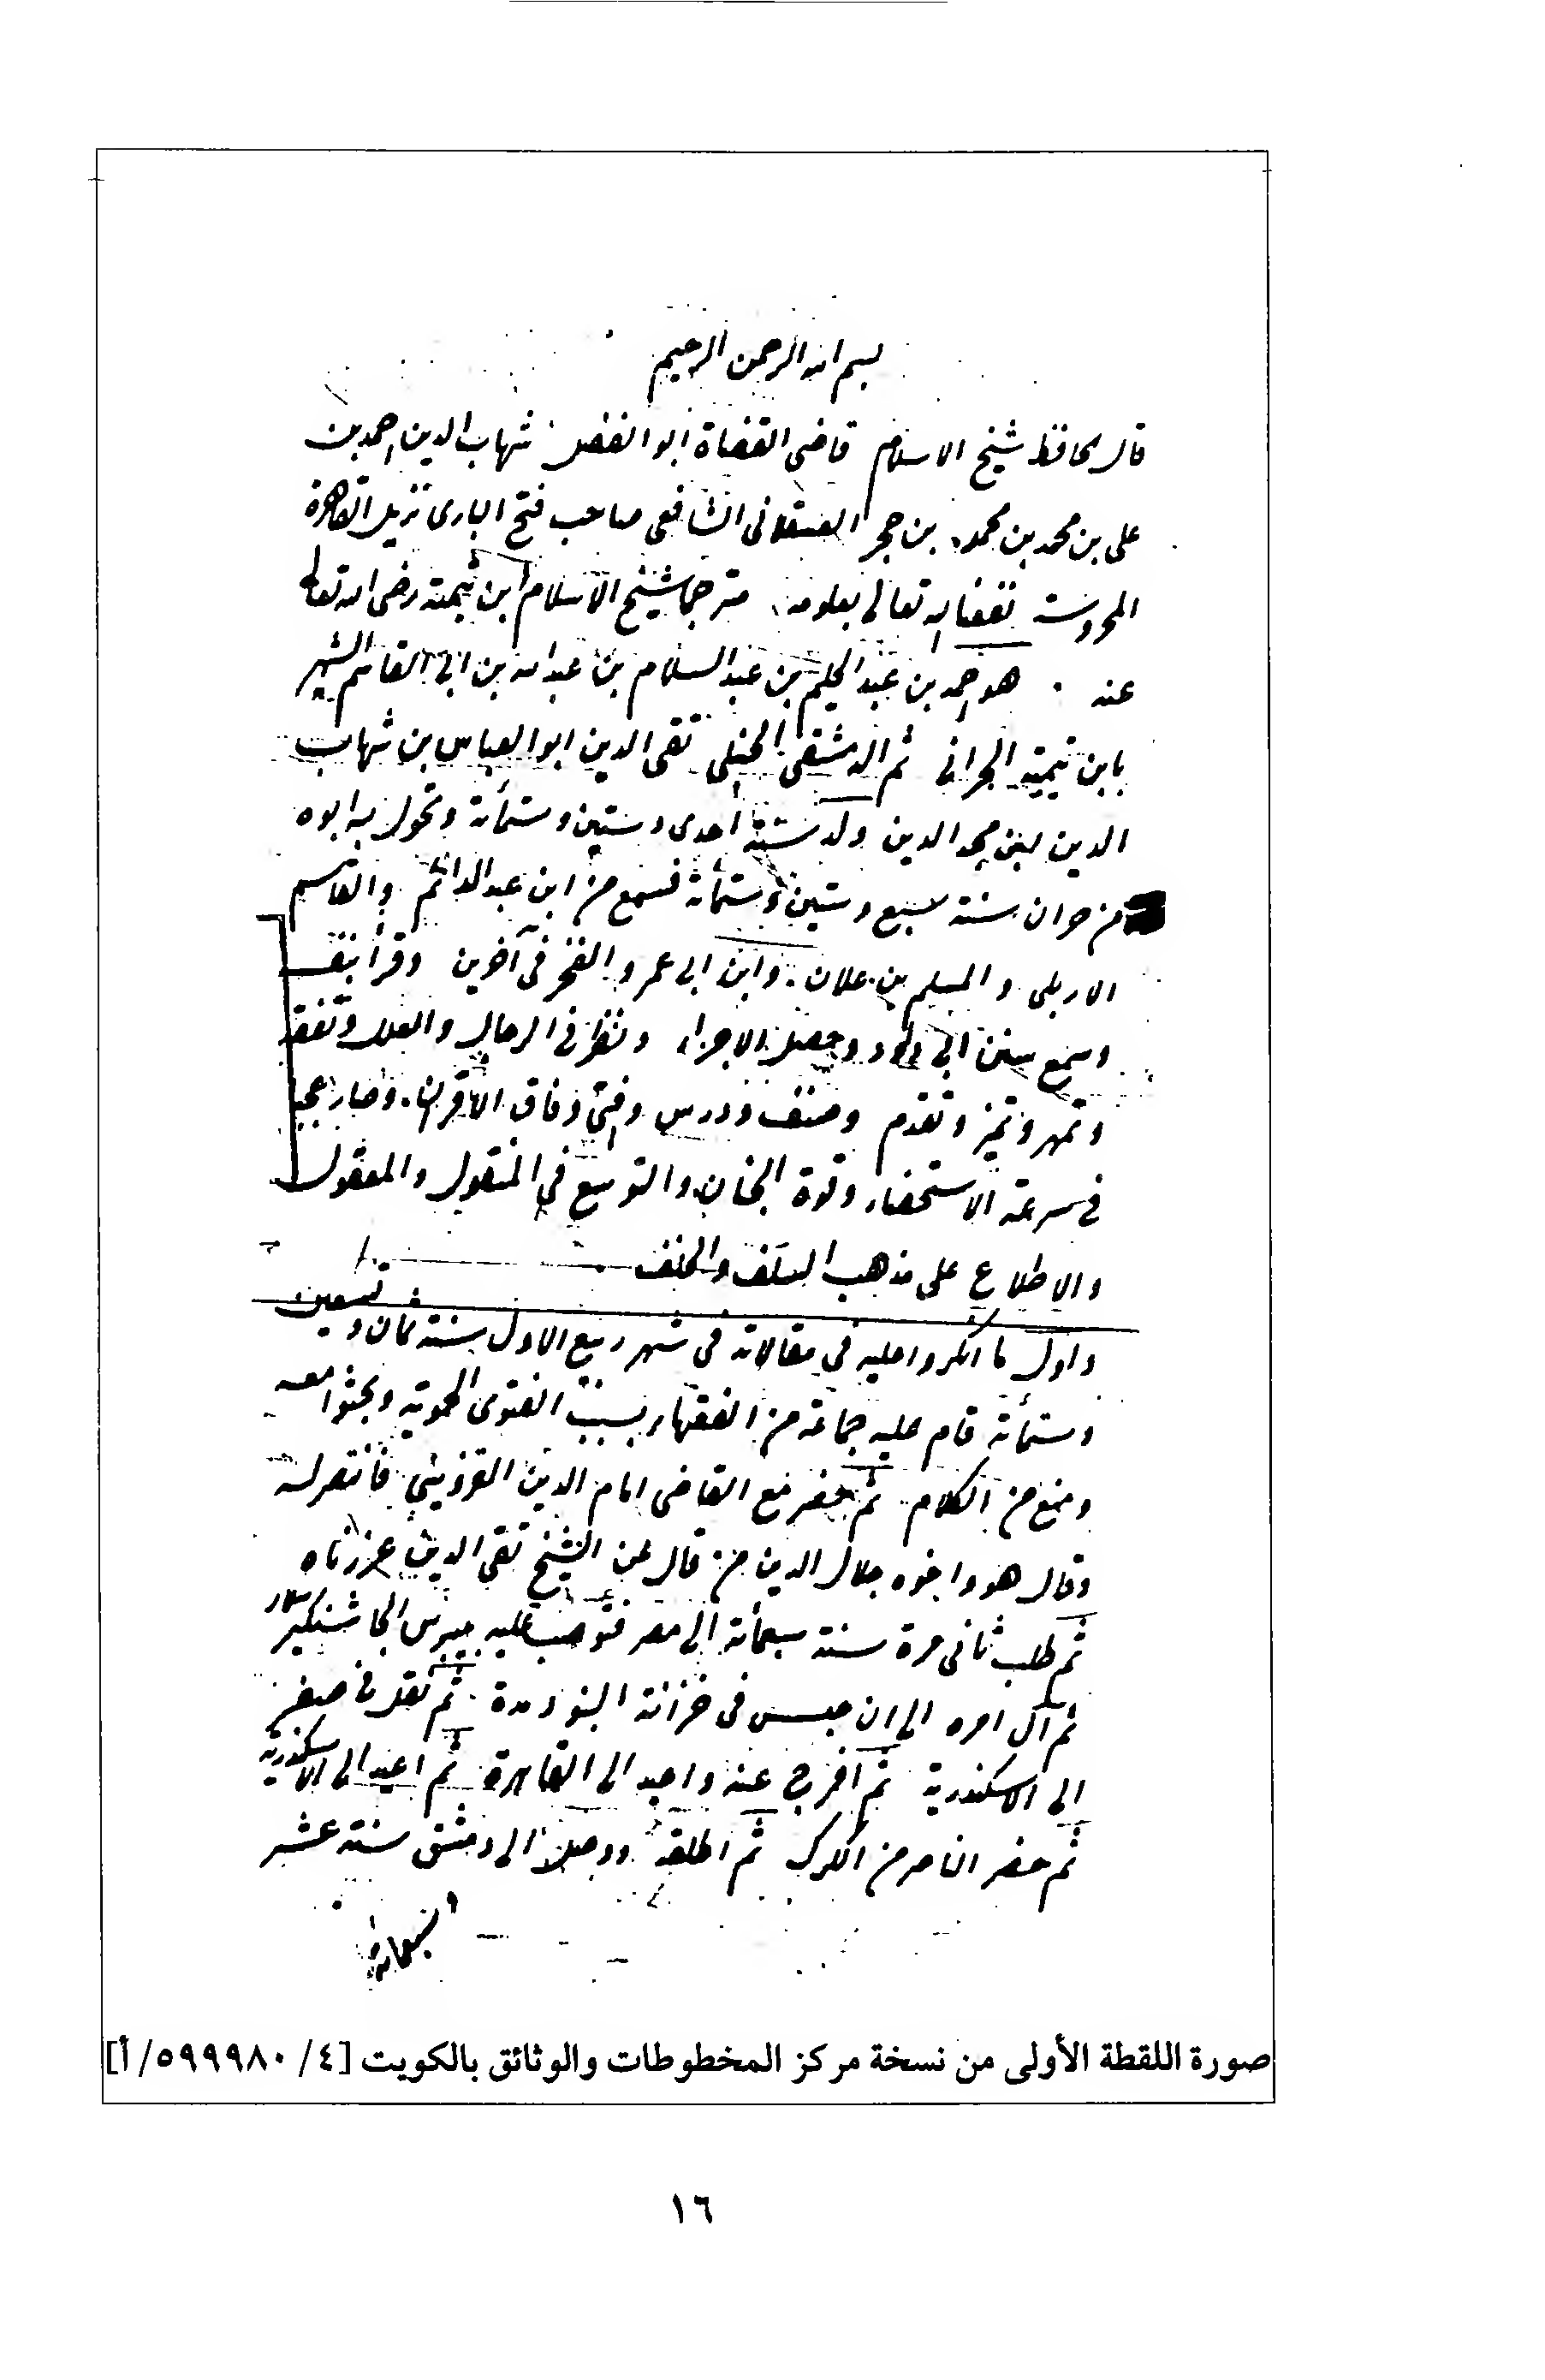 بسم الله الرحمن الرحيم
قال الحافظ شيخ الاسلام قاضى القضاة أبو الفضل شهاب الدين احمد بن
على بن محمد بن محمد بن حجر العسقلانى الشافعى صاحب فتح البارى نزيل القاهرة
المحروسة نفعنا الله تعالى بعلومه مترجما شيخ الاسلام ابن تيمية رضى الله تعالى
عنه . هو احمد بن عبد الحليم بن عبد السلام بن عبد الله بن ابى القاسم الشهير
بابن تيمية الحرانى ثم الدمشقى الحنبلى تقى الدين ابو العباس بن شهاب
الدين بن مجد الدين ولد سنة أحدى وستين وستمأة وتحول به ابوه
من حران سنة سبع وستين وستمأة فسمع من ابن عبد الدائم والقاسم
الاربلى والمسلم بن علان . وابن ابى عمر والفخر فى آخرين وقرأ بنفسه
وسمع سنن ابى داود وحصل الاجزاء ونظر فى الرجال والعلل وتفقه
وتمهر وتميز وتقدم وصنف ودرس وافتى وفاق الأقران . وصار عجبا
فى سرعة الاستحضار وقوة الجنان والتوسع في المنقول والمعقول
والاطلاع على مذهب السلف والخلف .
واول ما انكروا عليه في مقالاته فى شهر ربيع الاول سنة ثمان وتسعين
وستمأة قام عليه جماعة من الفقهاء بسبب الفتوى الحموية وبحثوا معه
ومنع من الكلام ثم حضر مع القاضى امام الدين القزوينى فانتصر له
وقال هو واخوه جلال الدين من قال عن الشيخ تقى الدين عزرناه
ثم طلب ثانى مرة سنة سبعمأة الى مصر فتعصب عليه بيبرس الجاشنكير سلار
ثم آل امره الى ان حبس فى خزانة البنود مدة . ثم نقل فى صفر
الى الاسكندرية ثم افرج عنه واعيد الى القاهرة ثم اعيد الى الاسكندرية
ثم حضر الناصر من الكرك ثم اطلقه ووصل الى دمشق سنة عشر
صورة اللقطة الأولى من نسخة مركز المخطوطات والوثائق بالكويت [٤/ ٥٩٩٩٨٠/ أ]
١٦